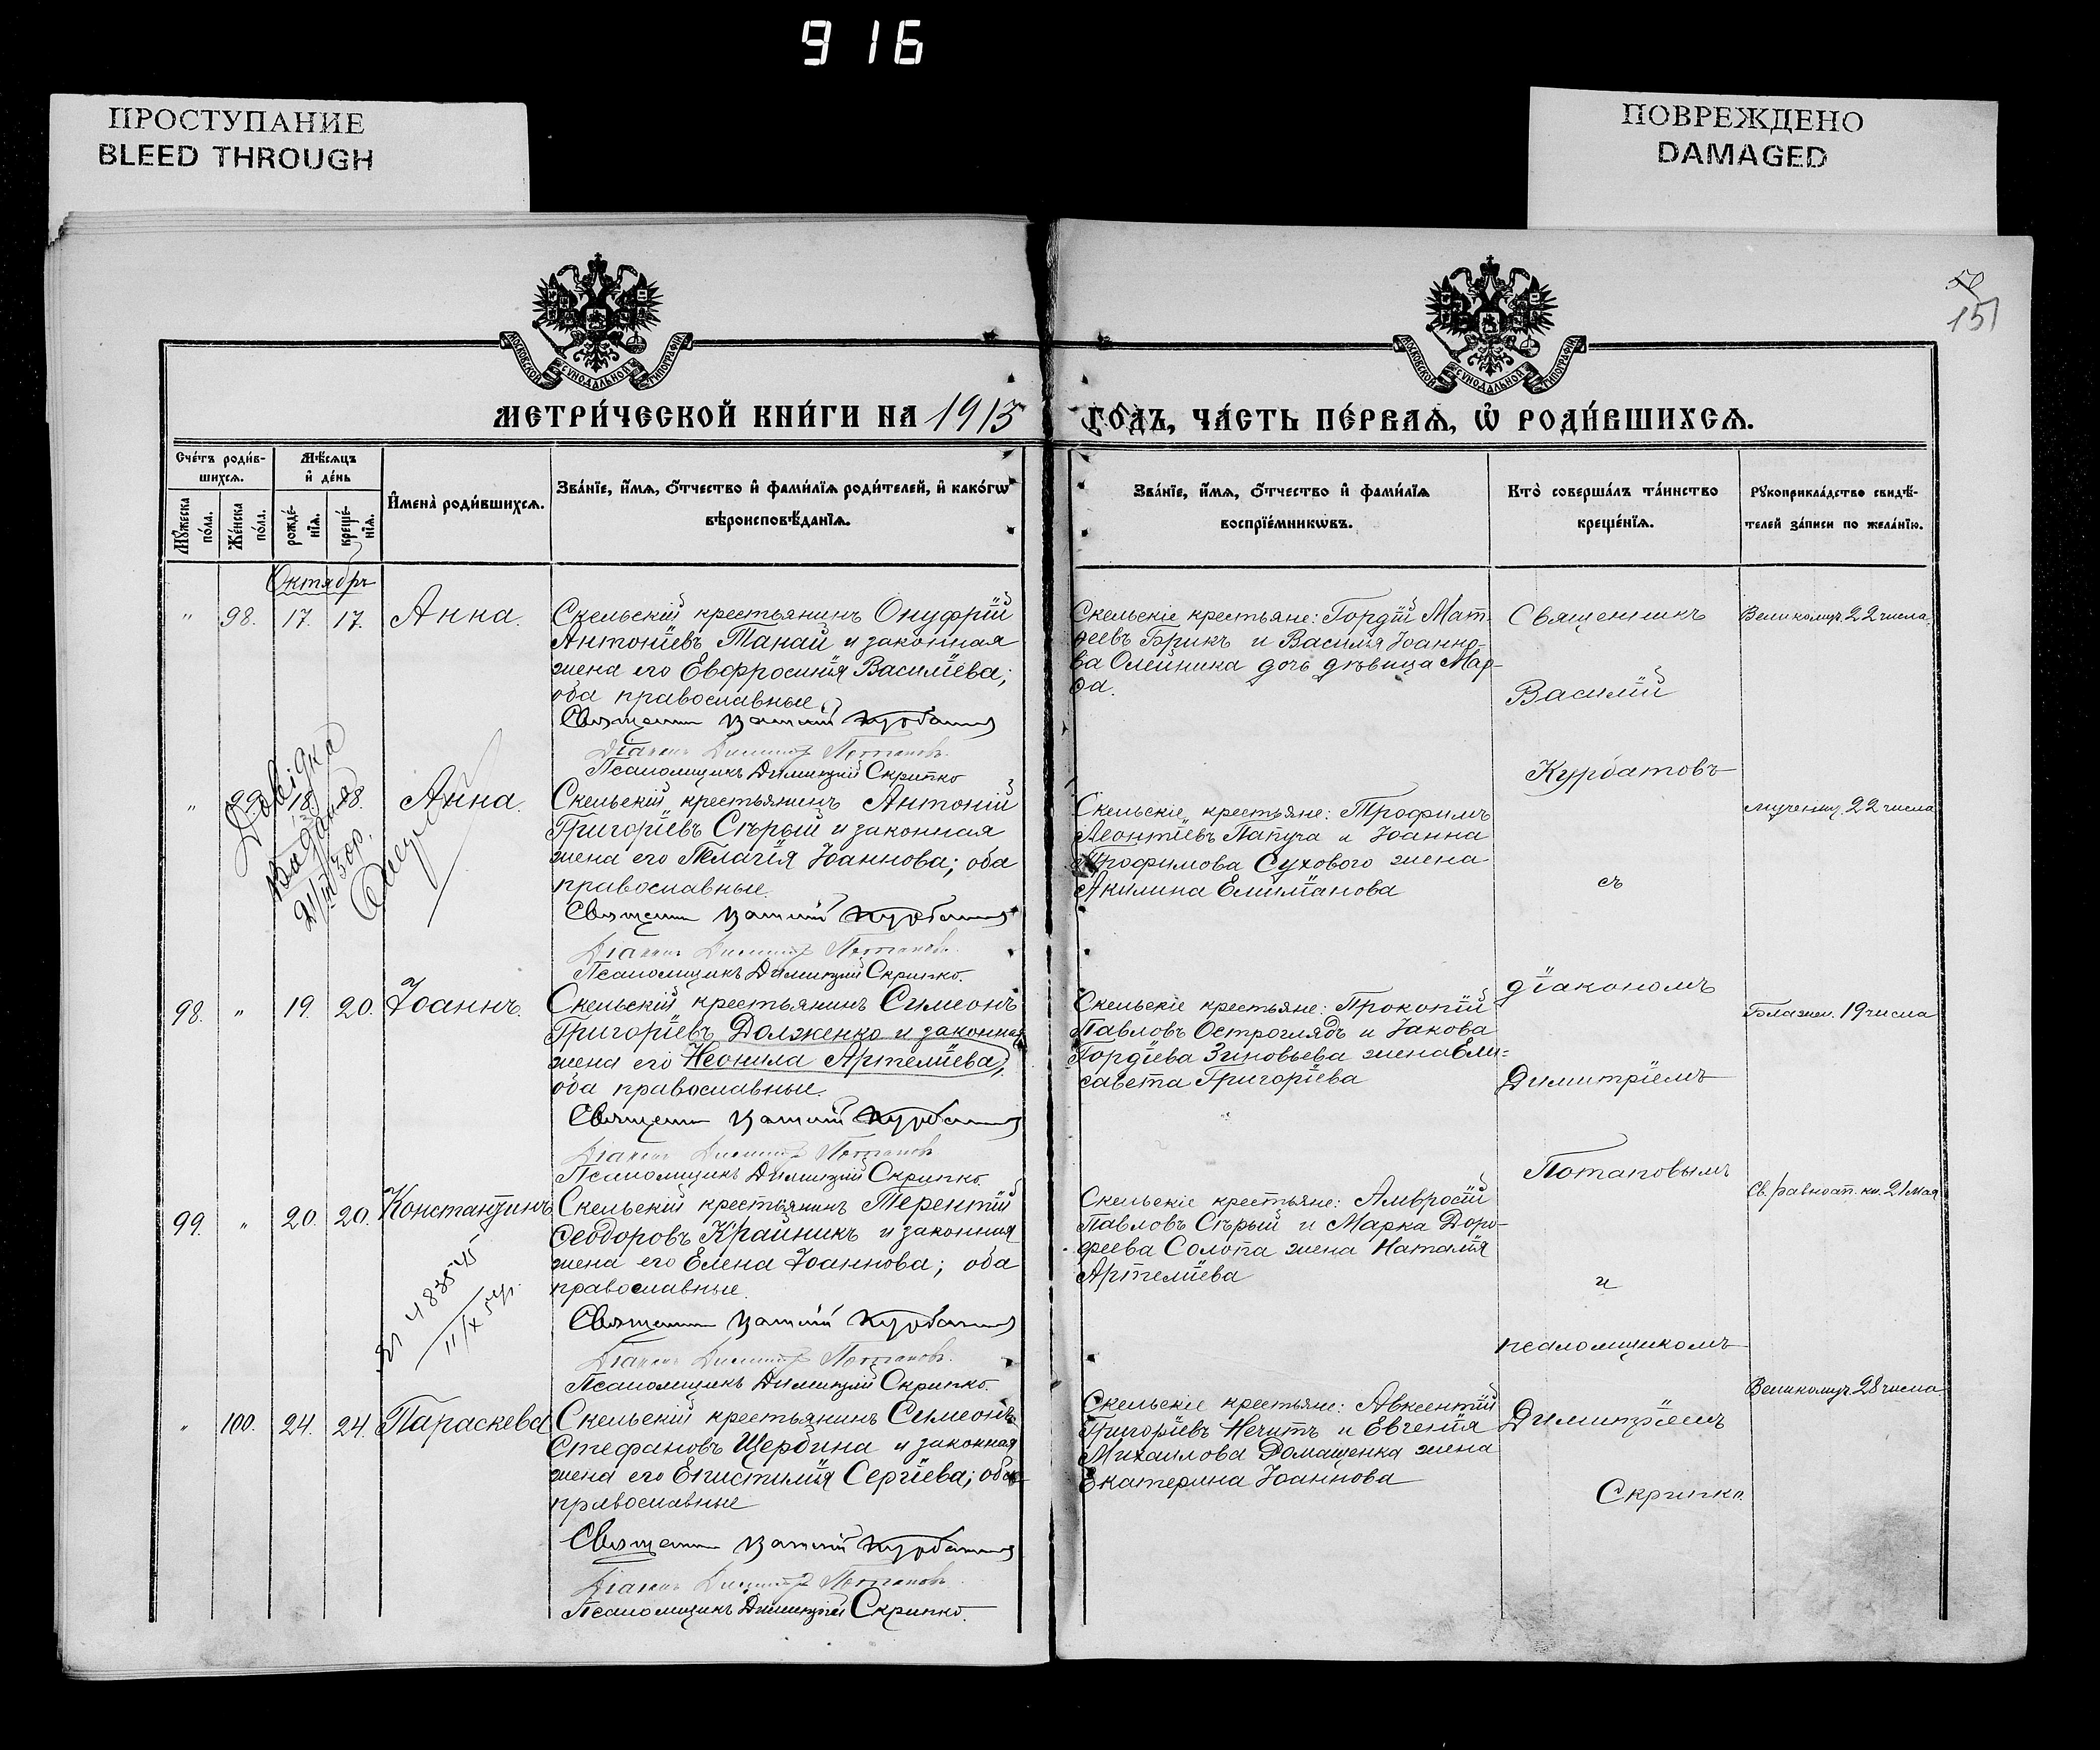 916
ПРОСТУПАНИЕ
BLEED THROUGH
ПОВРЕЖДЕНО
DAMAGED
151
МОСКОВСКОЙ СѴНОДАЛЬНОЙ ТИПОГРАФІИ
МОСКОВСКОЙ СѴНОДАЛЬНОЙ ТИПОГРАФІИ
МЕТРИ́ЧЕСКОЙ КНИ́ГИ НА 1913 ГО́ДЪ, ЧА́СТЬ ПЕ́РВАѦ, Ѡ҆ РОДИ́ВШИХСѦ.
Сче́тъ роди́в-
шихсѧ.
Мѣ́сѧцъ
и҆ де́нь
Мꙋ́жеска по́ла.
Же́нска по́ла.
рожде́-нїѧ.
креще́-нїѧ.
И҆мена̀ роди́вшихсѧ.
Зва́нїе, и҆́мѧ, ѻ҆́тчество и҆ фами́лїѧ роди́телей, и҆ како́гѡ
вѣроисповѣ́данїѧ.
Зва́нїе, и҆́мѧ, ѻ҆́тчество и҆ фами́лїѧ
воспрїе́мникѡвъ.
Кто̀ соверша́лъ та́инство
креще́нїѧ.
Рꙋкоприкла́дство свидѣ́-
телей за́писи по жела́нїю.
Октябрь
" 98. 17. 17. Анна.
Скельскій крестьянинъ Онуфрій
Антоніевъ Танай и законная
жена его Евфросинія Василіева;
оба православные.
Священникъ Василій Курбатовъ
Діаконъ Димитрій Потаповъ.
Псаломщикъ Димитрій Скрипко
Скельскіе крестьяне: Гордій Мат-
ѳеевъ Брикъ и Василія Іоанно-
ва Олейника дочь дѣвица Мар-
ѳа.
Великомуч. 22 числа.
" 99. 18. 18. Анна.
Довідка
видана
Скельскій крестьянинъ Антоній
Григоріевъ Сѣрый и законная
жена его Пелагія Іоаннова; оба
православные.
Священникъ Василій Курбатовъ
Діаконъ Димитрій Потаповъ.
Псаломщикъ Димитрій Скрипко.
Скельскіе крестьяне: Трофимъ
Леонтіевъ Папуча и Іоанна
Трофимова Сухового жена
Акилина Емиліанова
мучениц. 22 числа
98. " 19. 20. Іоаннъ.
Скельскій крестьянинъ Симеонъ
Григоріевъ Долженко и законная
жена его Неонила Артеміева;
оба православные.
Священникъ Василій Курбатовъ
Діаконъ Димитрій Потаповъ
Псаломщикъ Димитрій Скрипко.
Скельскіе крестьяне: Прокопій
Павловъ Остроглядъ и Іакова
Гордіева Зиновьева жена Ели=
савета Григоріева
Блажен. 19 числа
99. " 20. 20. Константинъ
11/X
Скельскій крестьянинъ Терентій
Ѳеодоровъ Крайникъ и законная
жена его Елена Іоаннова; оба
православные.
Священникъ Василій Курбатовъ
Діаконъ Димитрій Потаповъ.
Псаломщикъ Димитрій Скрипко.
Скельскіе крестьяне: Амвросій
Павловъ Сѣрый и Марка Доро-
ѳеева Солопа жена Наталія
Артеміева
Св. равноап. кн. 21 Мая
" 100. 24. 24. Параскева
Скельскій крестьянинъ Симеонъ
Стефановъ Щербина и законная
жена его Епистимія Сергіева; оба
православные
Священникъ Василій Курбатовъ
Діаконъ Димитрій Потаповъ
Псаломщикъ Димитрій Скрипко.
Скельскіе крестьяне: Авксентій
Григоріевъ Нечитъ и Евгенія
Михаилова Домашенка жена
Екатерина Іоаннова
Великомуч. 28 числа
Священникъ
Василій
Курбатовъ
съ
діакономъ
Димитріемъ
Потаповымъ
и
псаломщикомъ
Димитріемъ
Скрипко.